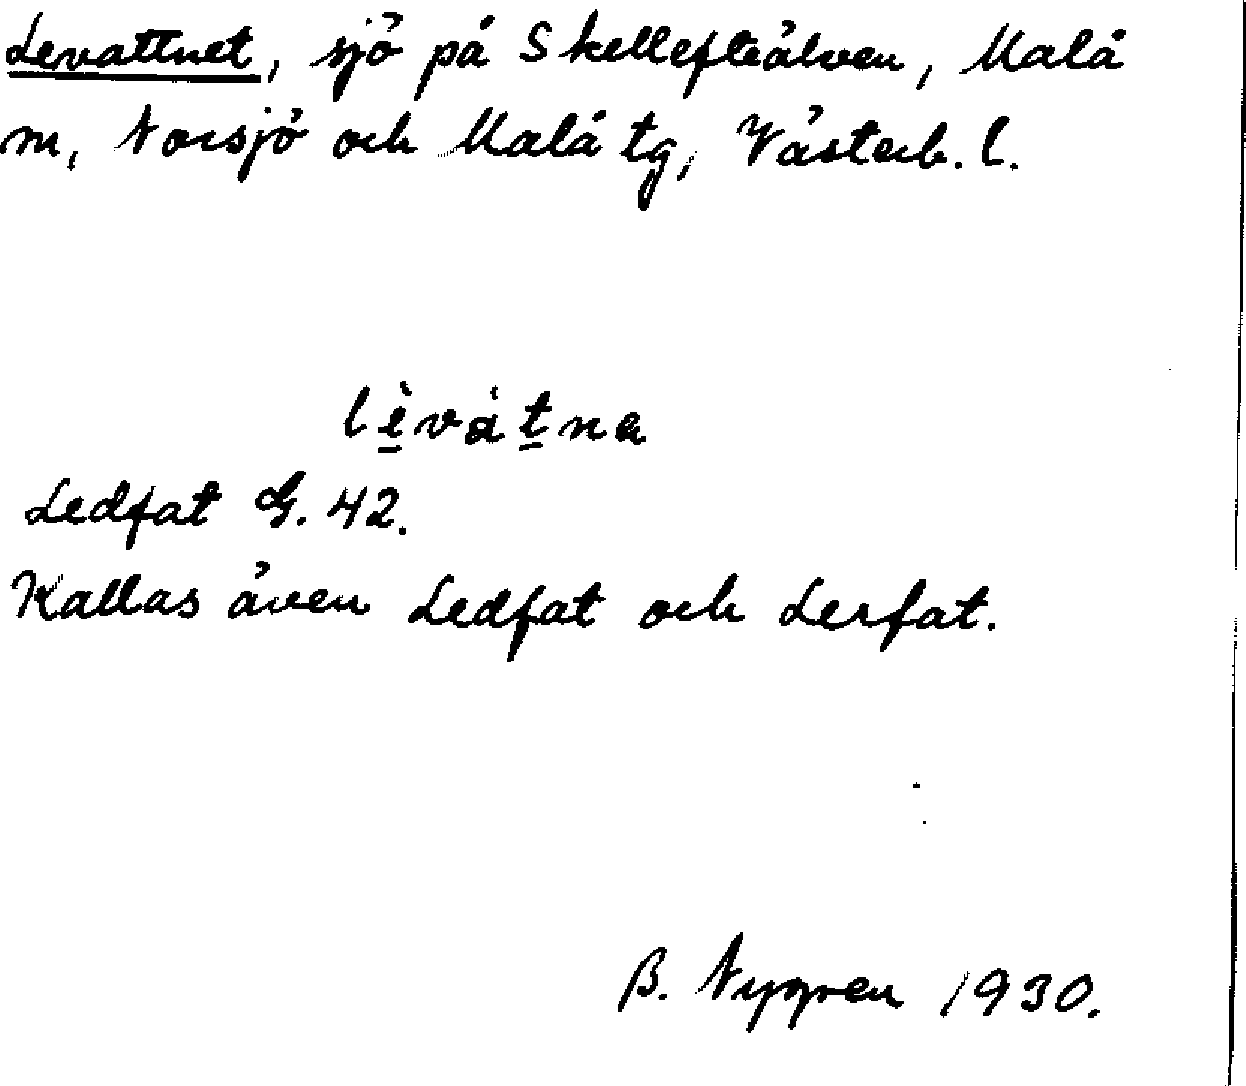 Levattnet, sjö på Skellefteälven, Malå
m, Norsjö och Malå tg, Västerb. l.
lèvátna
Ledfat G. 42.
Kallas även Ledfat och Lerfat.
B. Nygren 1930.